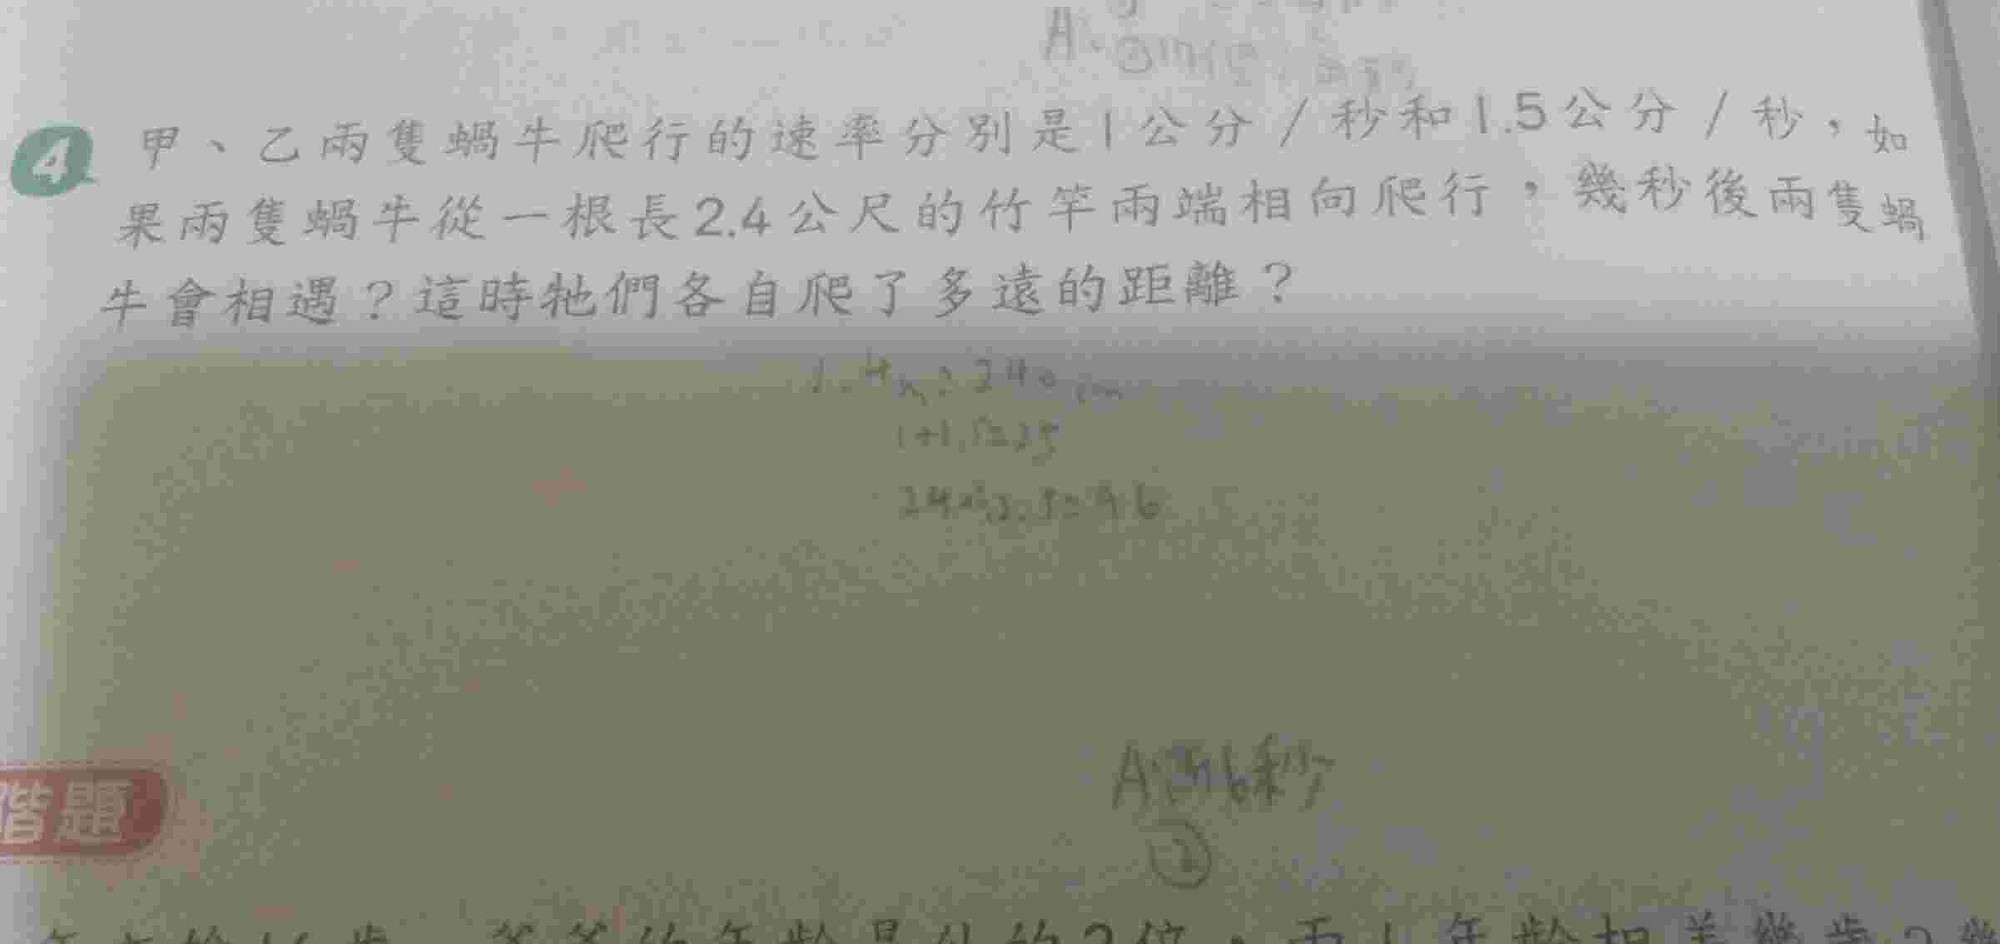 A:
4 甲、乙兩隻蝸牛爬行的速率分別是1公分/秒和1.5公分/秒，如
果兩隻蝸牛從一根長2.4公尺的竹竿兩端相向爬行，幾秒後兩隻蝸
牛會相遇？這時牠們各自爬了多遠的距離？
2.4m=240cm
1+1.5=2.5
240÷2.5=96
A:①96秒
②
階題